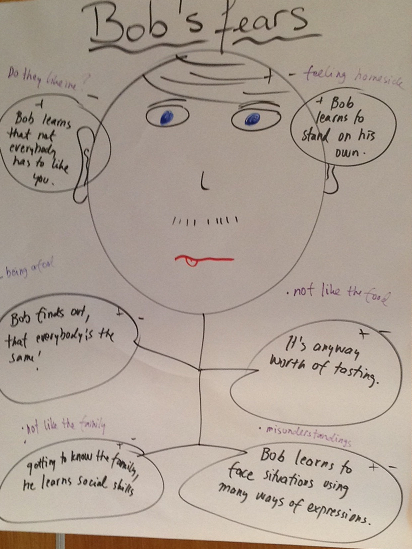 Bob's fears
Do they like me?
Bob learns
that not
everybody
has to like
you.
- feeling homesick
Bob
learns to
stand on his
own.
- being afraid
Bob finds out,
that everybody is the
same!
· not like the food
It's anyway
worth of tasting.
· not like the family
getting to know the family,
he learns social skills
· misunderstandings
Bob learns to
face situations using
many ways of expressions.